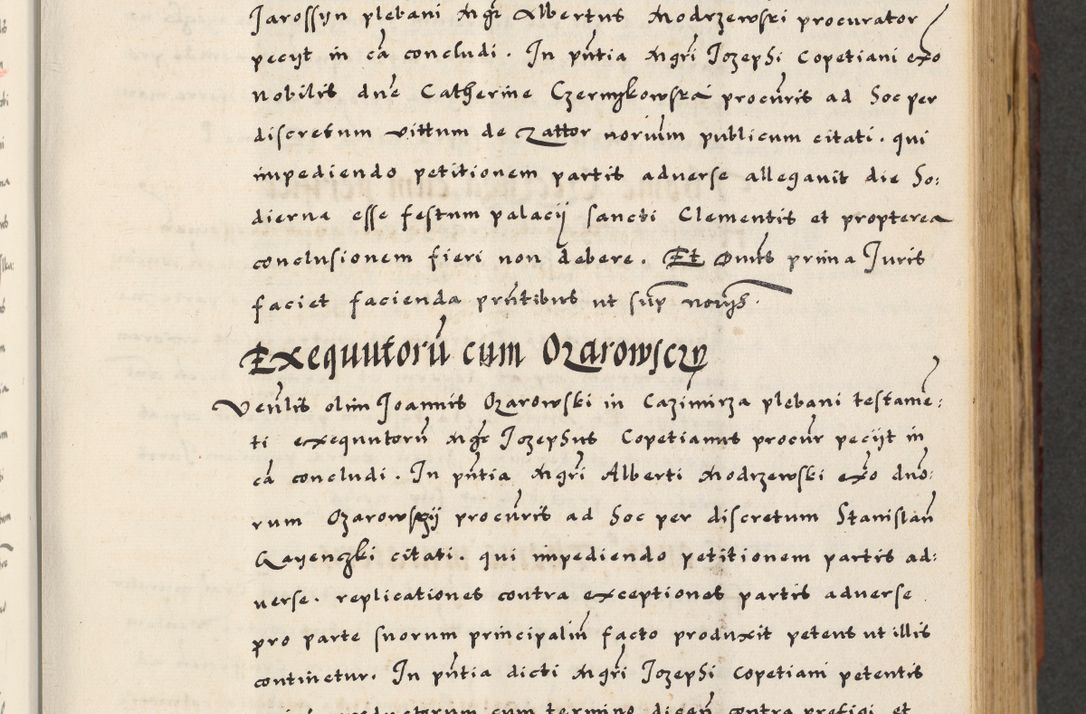 Jarossyn plebani Mgr Albertus Modrzewski procurator
pecyt in cã concludi. In pñtia Mgri Jozephi Copetiani exo
nobilis dne Catherine Czernykowska procuris ad hoc per
discretum vittum de Zattor noriũm publicum citati. qui
impediendo petitionem partis adverse allegavit die ho:
dierna esse festum palacij sancti Clementis et propterea
conclusionem fieri non debere. Et Dnus prima Juris
faciet facienda prñtibus ut sup norijs.
Exequutorũ cum Ozarowsczy
Venlis olim Joannis Ozarowski in Cazimirza plebani testame:
ti exequutorũ Mgr Jozephus Copetianus procur pecijt in
cã concludi. In pñtia Mgri Alberti Modrzewski exo dno:
rum Ozarowskij procuris ad hoc per discretum Stanislaũ
citati. qui impediendo petitionem partis ad:
verse. replicationes contra exceptiones partis adverse
pro parte suorum principaliũ facto produxit petens ut illis
continetur. In pñtia dicti Mgri Jozephi Copetiani petentis
productorum cum termino dicen contra prefigi et